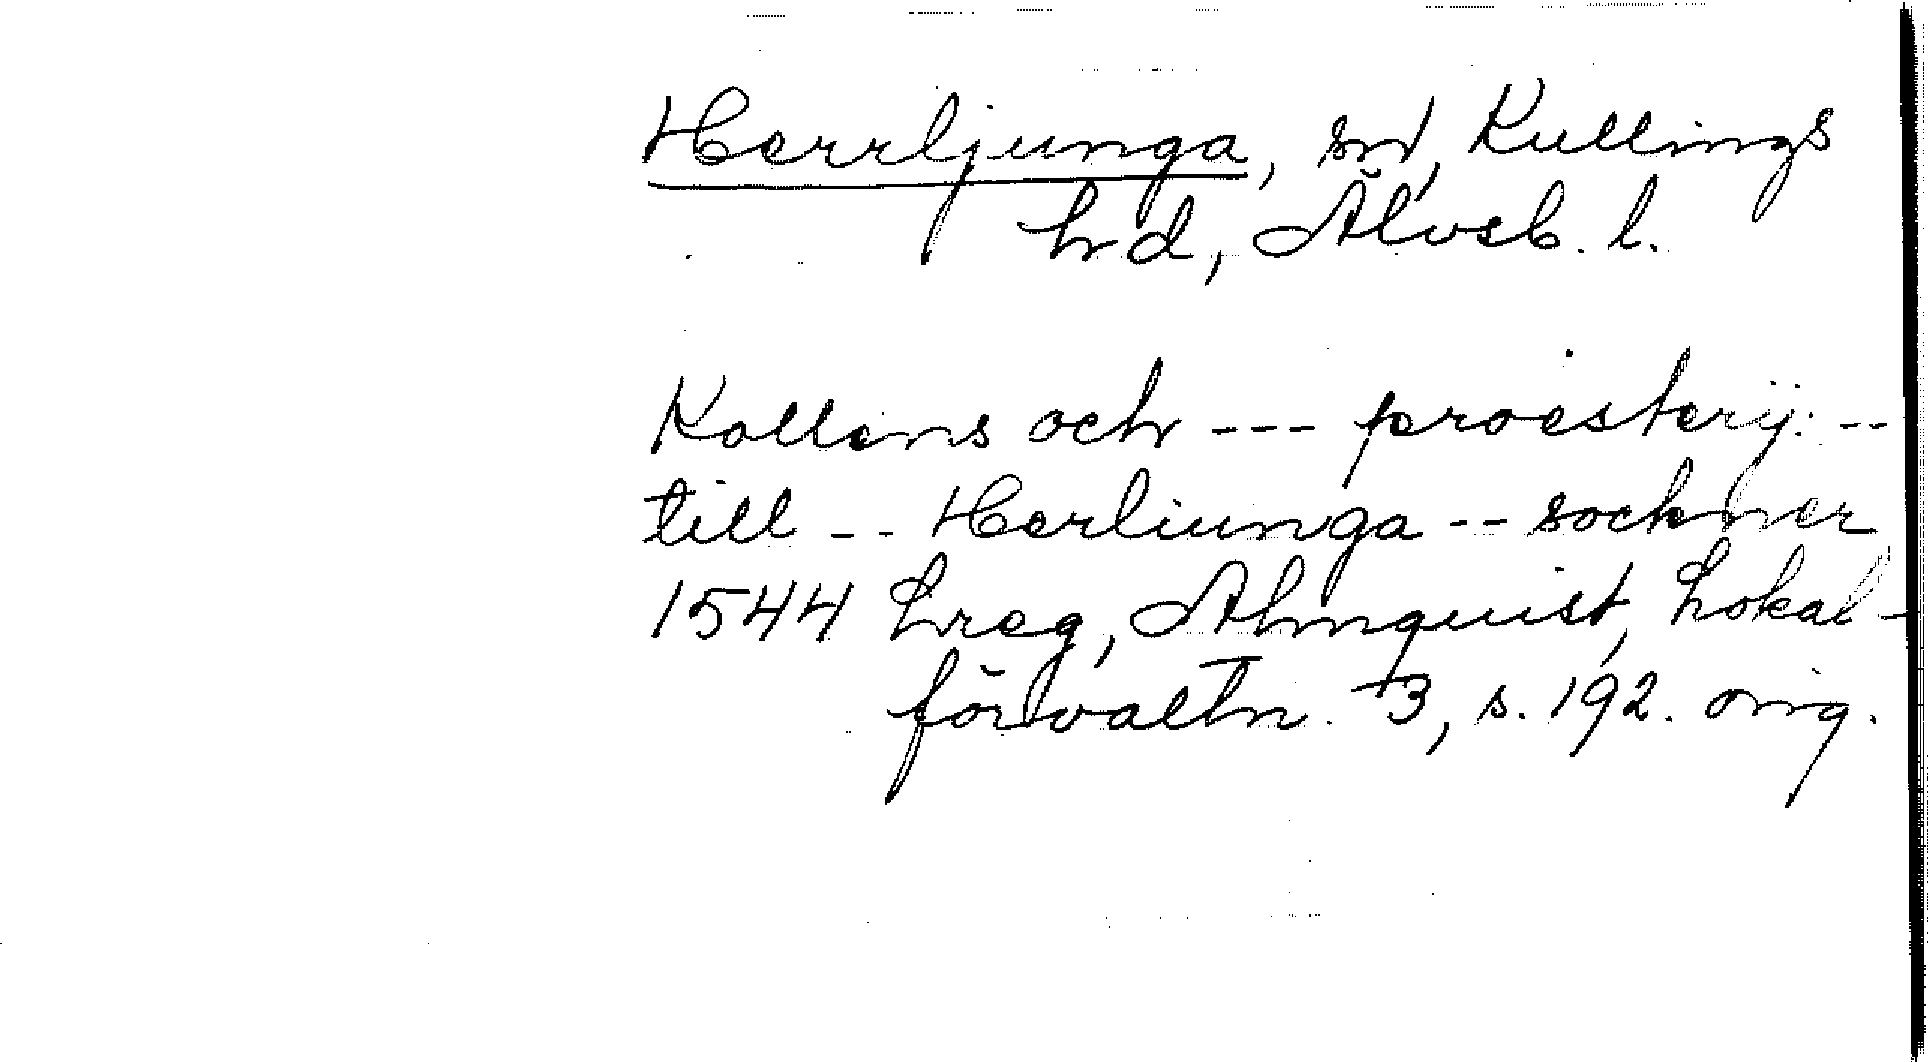 Herrljunga, sn, Kullings
hd, Älvsb. l.
Kollens och --- proesterij: --
till -- Herliunga -- sockner
1544 hreg, Almquist, Lokal-
förvaltn. 3, s. 192. orig.